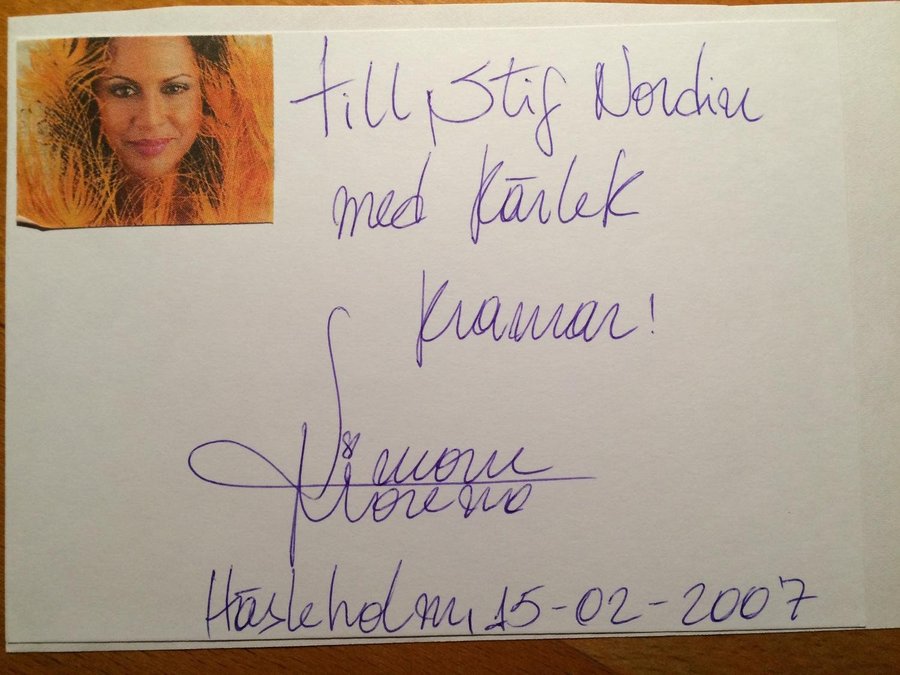 till Stig Nordin
med Kärlek
Kramar!
Simone
Moreno
Hässleholm, 15-02-2007